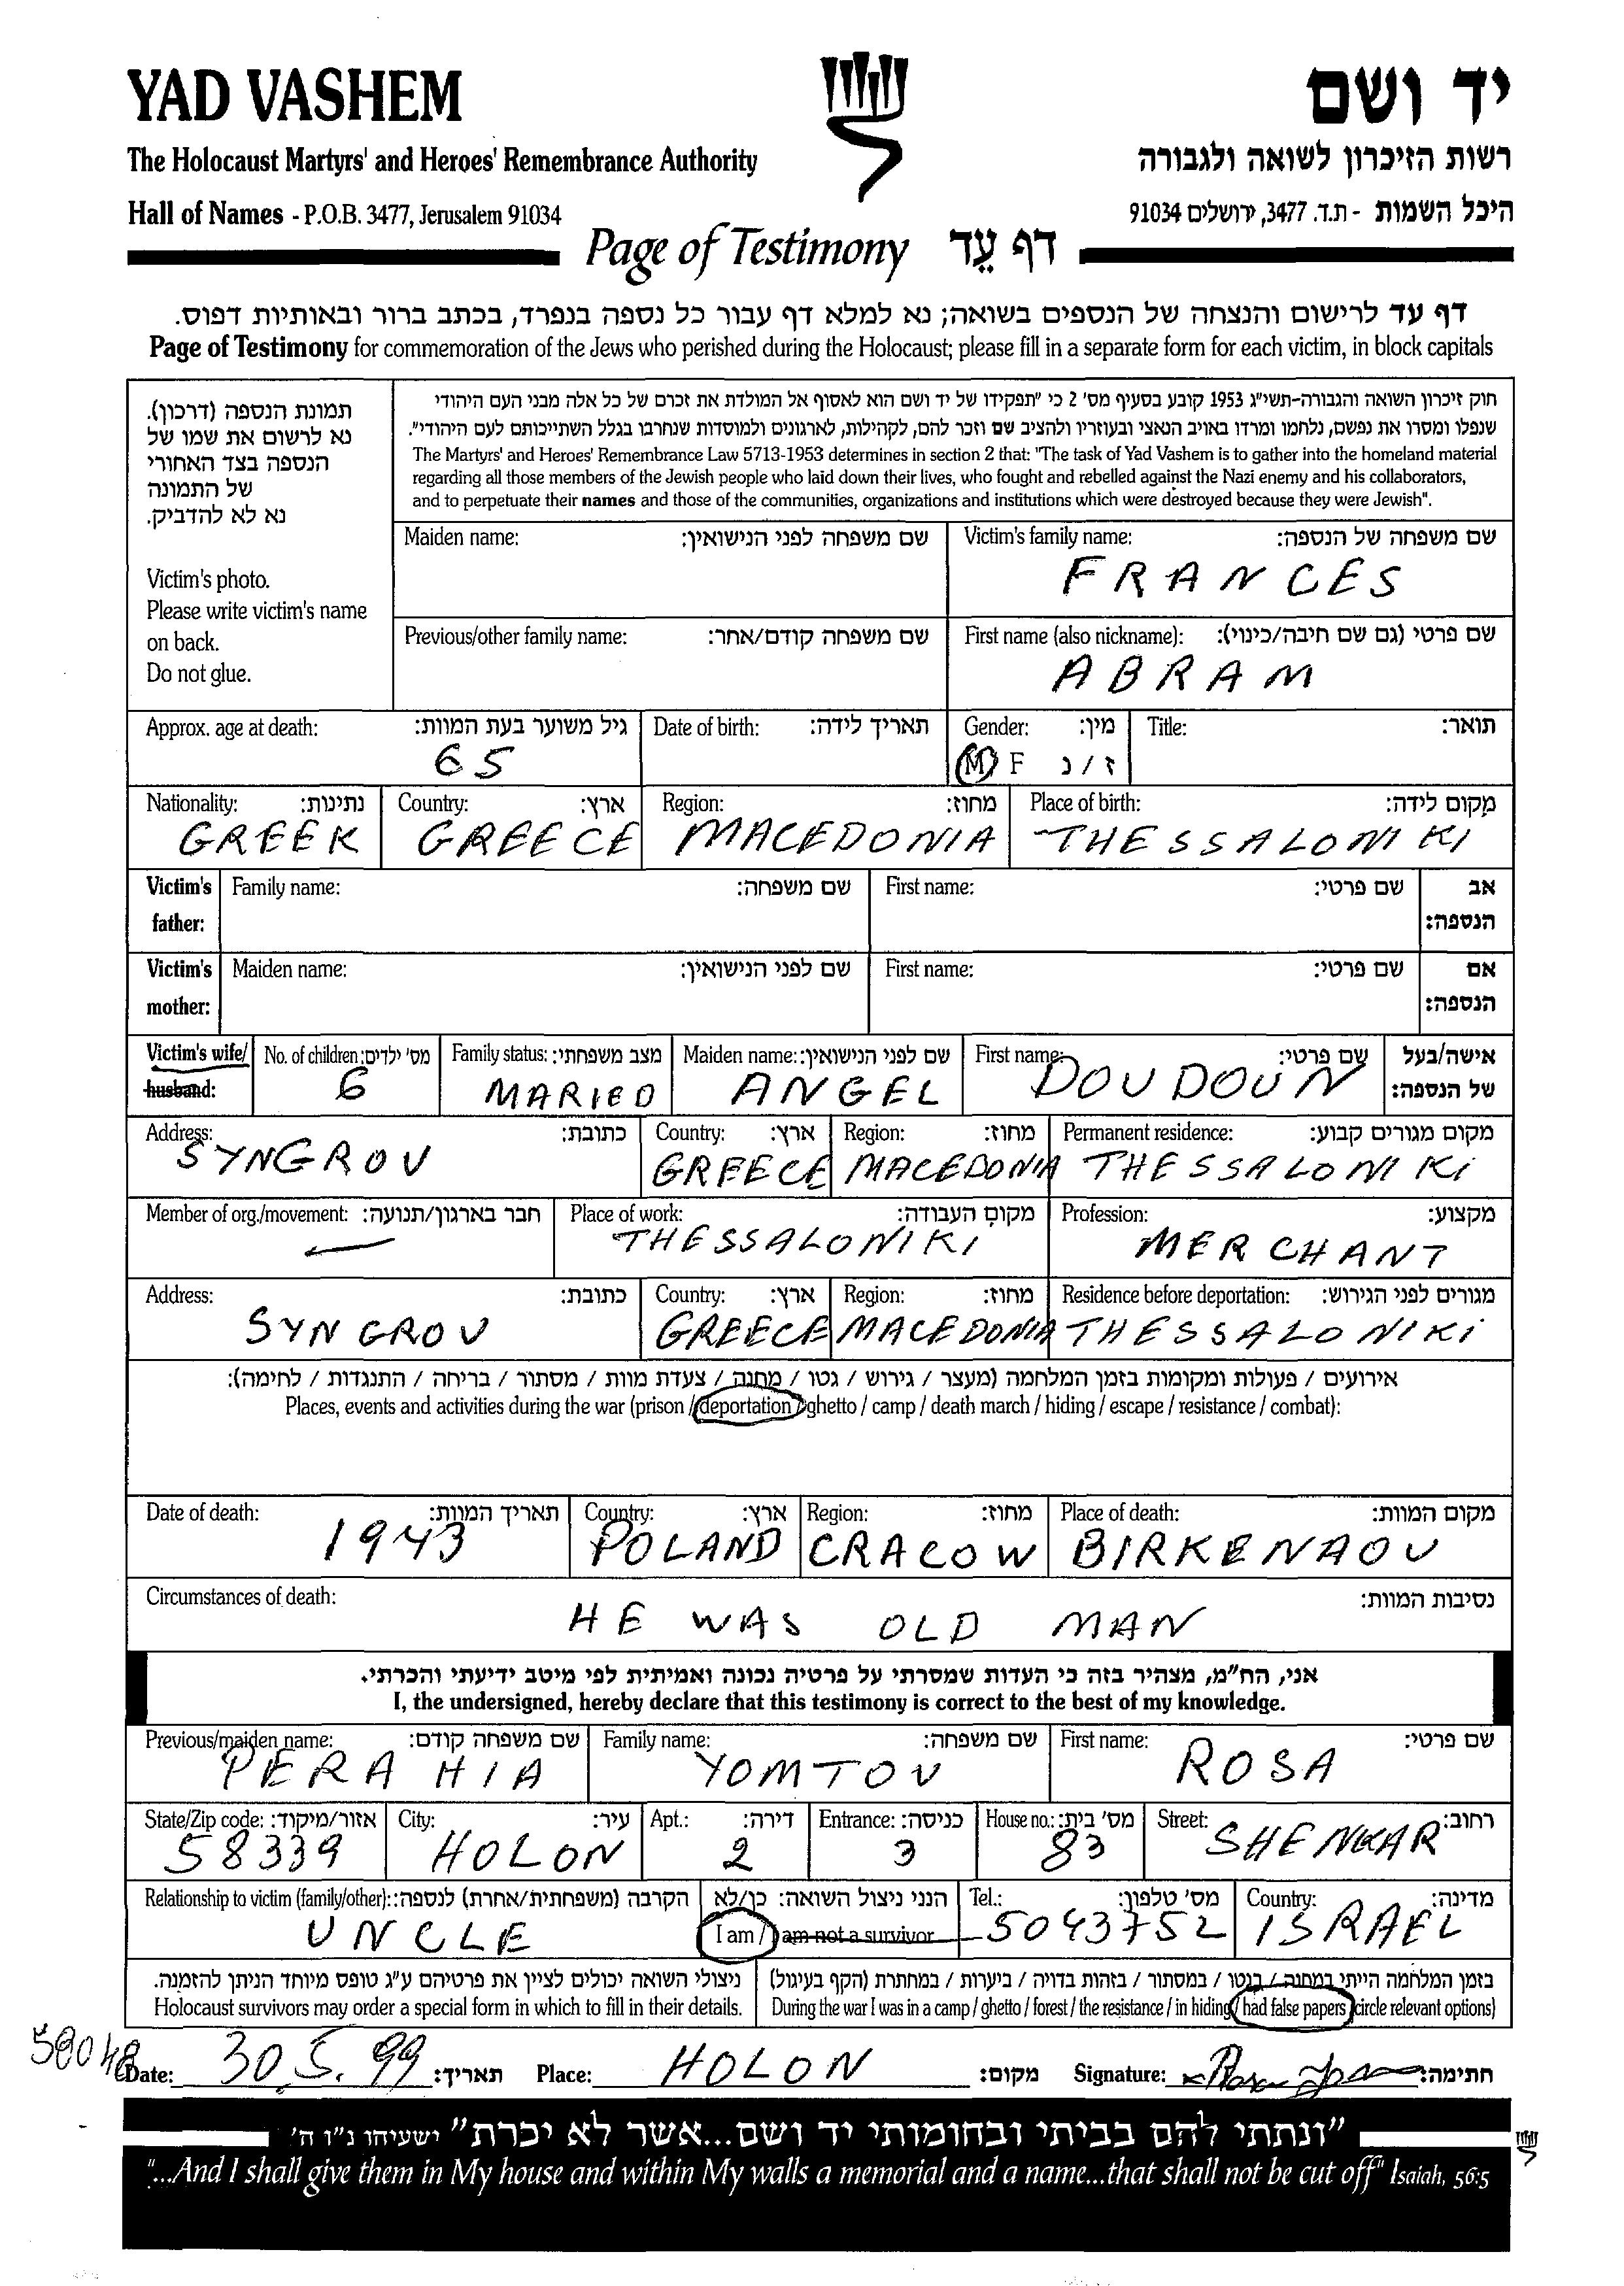 YAD VASHEM
יד ושם
The Holocaust Martyrs' and Heroes' Remembrance Authority
רשות הזיכרון לשואה ולגבורה
Hall of Names - P.O.B. 3477, Jerusalem 91034
היכל השמות - ת.ד. 3477, ירושלים 91034
Page of Testimony דף עֵד
דף עד לרישום והנצחה של הנספים בשואה; נא למלא דף עבור כל נספה בנפרד, בכתב ברור ובאותיות דפוס.
Page of Testimony for commemoration of the Jews who perished during the Holocaust; please fill in a separate form for each victim, in block capitals
תמונת הנספה (דרכון).
נא לרשום את שמו של
הנספה בצד האחורי
של התמונה
נא לא להדביק.
Victim's photo.
Please write victim's name
on back.
Do not glue.
חוק זיכרון השואה והגבורה-תשי"ג 1953 קובע בסעיף מס' 2 כי "תפקידו של יד ושם הוא לאסוף אל המולדת את זכרם של כל אלה מבני העם היהודי
שנפלו ומסרו את נפשם, נלחמו ומרדו באויב הנאצי ובעוזריו ולהציב שם וזכר להם, לקהילות, לארגונים ולמוסדות שנחרבו בגלל השתייכותם לעם היהודי".
The Martyrs' and Heroes' Remembrance Law 5713-1953 determines in section 2 that: "The task of Yad Vashem is to gather into the homeland material
regarding all those members of the Jewish people who laid down their lives, who fought and rebelled against the Nazi enemy and his collaborators,
and to perpetuate their names and those of the communities, organizations and institutions which were destroyed because they were Jewish".
Maiden name: שם משפחה לפני הנישואין: Victim's family name: שם משפחה של הנספה:
FRANCES
Previous/other family name: שם משפחה קודם/אחר: First name (also nickname): שם פרטי (גם שם חיבה/כינוי):
ABRAM
Approx. age at death: גיל משוער בעת המוות: Date of birth: תאריך לידה: Gender: מין: Title: תואר:
65 M F ז / נ
Nationality: נתינות: Country: ארץ: Region: מחוז: Place of birth: מקום לידה:
GREEK GREECE MACEDONIA THESSALONIKI
Victim's Family name: שם משפחה: First name: שם פרטי: אב
father: הנספה:
Victim's Maiden name: שם לפני הנישואין: First name: שם פרטי: אם
mother: הנספה:
Victim's wife/ No. of children: מס' ילדים: Family status: מצב משפחתי: Maiden name: שם לפני הנישואין: First name: שם פרטי: אישה/בעל
husband: 6 MARIED ANGEL DOUDOUN של הנספה:
Address: כתובת: Country: ארץ: Region: מחוז: Permanent residence: מקום מגורים קבוע:
SYNGROU GREECE MACEDONIA THESSALONIKi
Member of org./movement: חבר בארגון/תנועה: Place of work: מקום העבודה: Profession: מקצוע:
THESSALONIKI MERCHANT
Address: כתובת: Country: ארץ: Region: מחוז: Residence before deportation: מגורים לפני הגירוש:
SYNGROU GREECE MACEDONIA THESSALONIKi
אירועים / פעולות ומקומות בזמן המלחמה (מעצר / גירוש / גטו / מחנה / צעדת מוות / מסתור / בריחה / התנגדות / לחימה):
Places, events and activities during the war (prison / deportation / ghetto / camp / death march / hiding / escape / resistance / combat):
Date of death: תאריך המוות: Country: ארץ: Region: מחוז: Place of death: מקום המוות:
1943 POLAND CRACOW BIRKENAOU
Circumstances of death: נסיבות המוות:
HE WAS OLD MAN
אני, הח"מ, מצהיר בזה כי העדות שמסרתי על פרטיה נכונה ואמיתית לפי מיטב ידיעתי והכרתי.
I, the undersigned, hereby declare that this testimony is correct to the best of my knowledge.
Previous/maiden name: שם משפחה קודם: Family name: שם משפחה: First name: שם פרטי:
PERAHIA YOMTOV ROSA
State/Zip code: אזור/מיקוד: City: עיר: Apt.: דירה: Entrance: כניסה: House no.: מס' בית: Street: רחוב:
58339 HOLON 2 3 83 SHENKAR
Relationship to victim (family/other): הקרבה (משפחתית/אחרת) לנספה: הנני ניצול השואה: כן/לא Tel.: מס' טלפון: Country: מדינה:
UNCLE I am / am not a survivor 5043752 ISRAEL
ניצולי השואה יכולים לציין את פרטיהם ע"ג טופס מיוחד הניתן להזמנה. בזמן המלחמה הייתי במחנה / בגטו / במסתור / בזהות בדויה / ביערות / במחתרת (הקף בעיגול)
Holocaust survivors may order a special form in which to fill in their details. During the war I was in a camp / ghetto / forest / the resistance / in hiding / had false papers (circle relevant options)
58048
Date: 30.5.99 תאריך: Place: HOLON מקום: Signature: חתימה:
"ונתתי להם בביתי ובחומותי יד ושם...אשר לא יכרת" ישעיהו נ"ו ה'
"...And I shall give them in My house and within My walls a memorial and a name...that shall not be cut off" Isaiah, 56:5